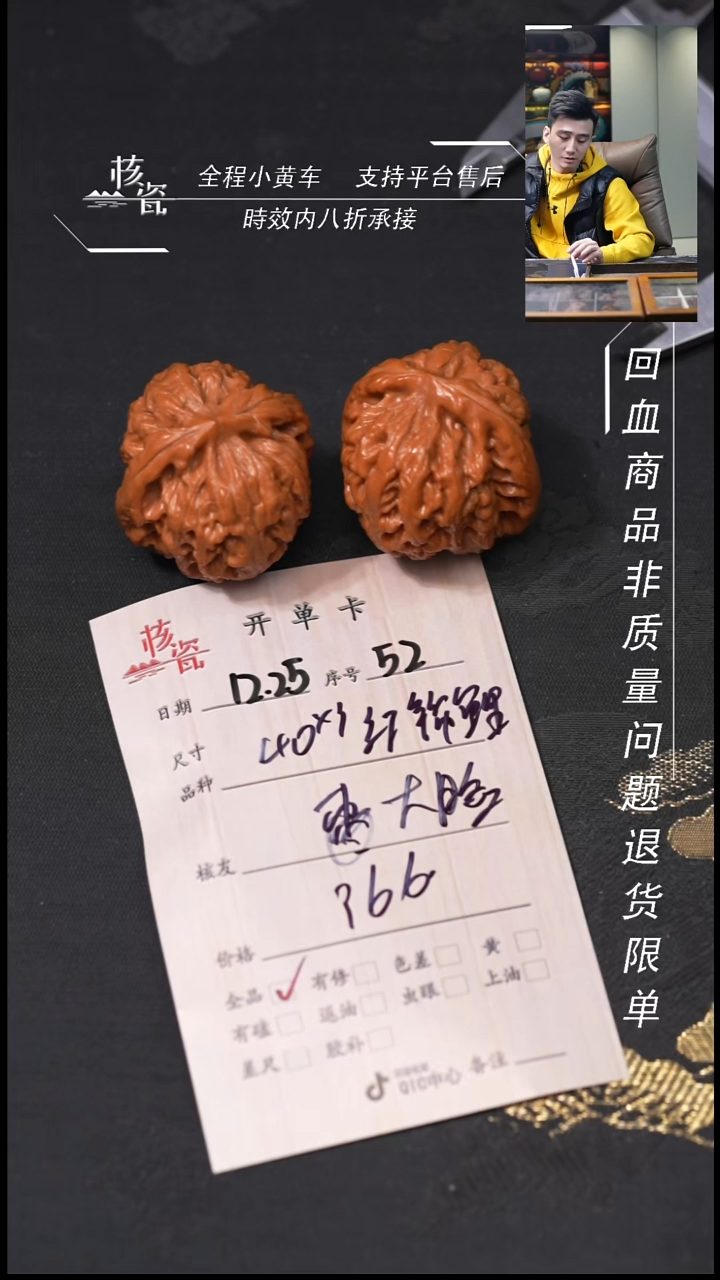 核瓷
全程小黄车 支持平台售后
時效内八折承接
回血商品非质量问题退货限单
核瓷
开单卡
日期 12.25 序号 52
尺寸
品种 40
核友 大脸
价格 366
全品 ✓ 有修 色差 黄
有磕 返油 虫眼 上油
差尺 胶补
QIC中心 备注